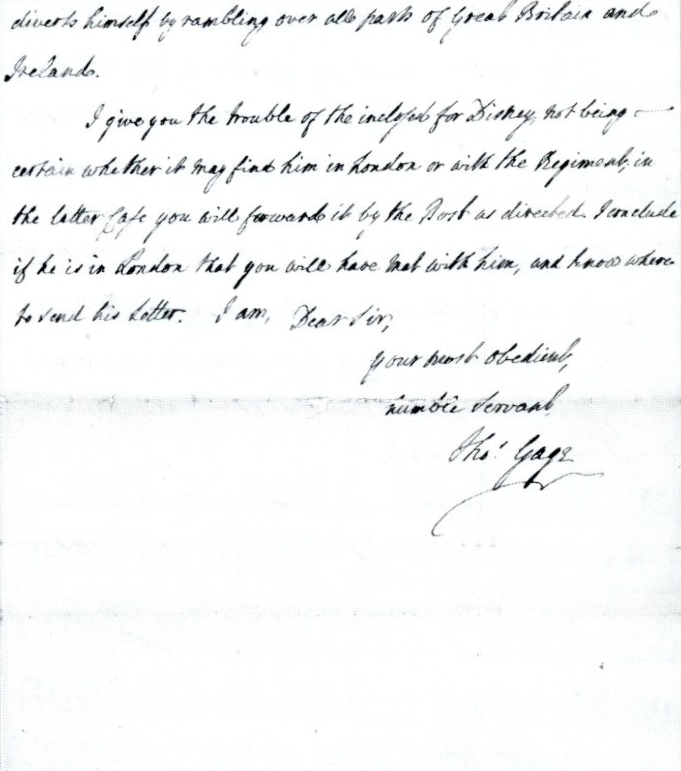 diverts himself by rambling over all parts of Great Britain and
Ireland.
I give you the trouble of the inclosed for Diskey, not being
certain whether it may find him in London or with the Regiment, in
the latter Case you will forward it by the Post as directed. I conclude
if he is in London that you will have met with him, and know where
to send his Letter. I am, Dear Sir,
your most obedient,
humble Servant
Tho.s Gage